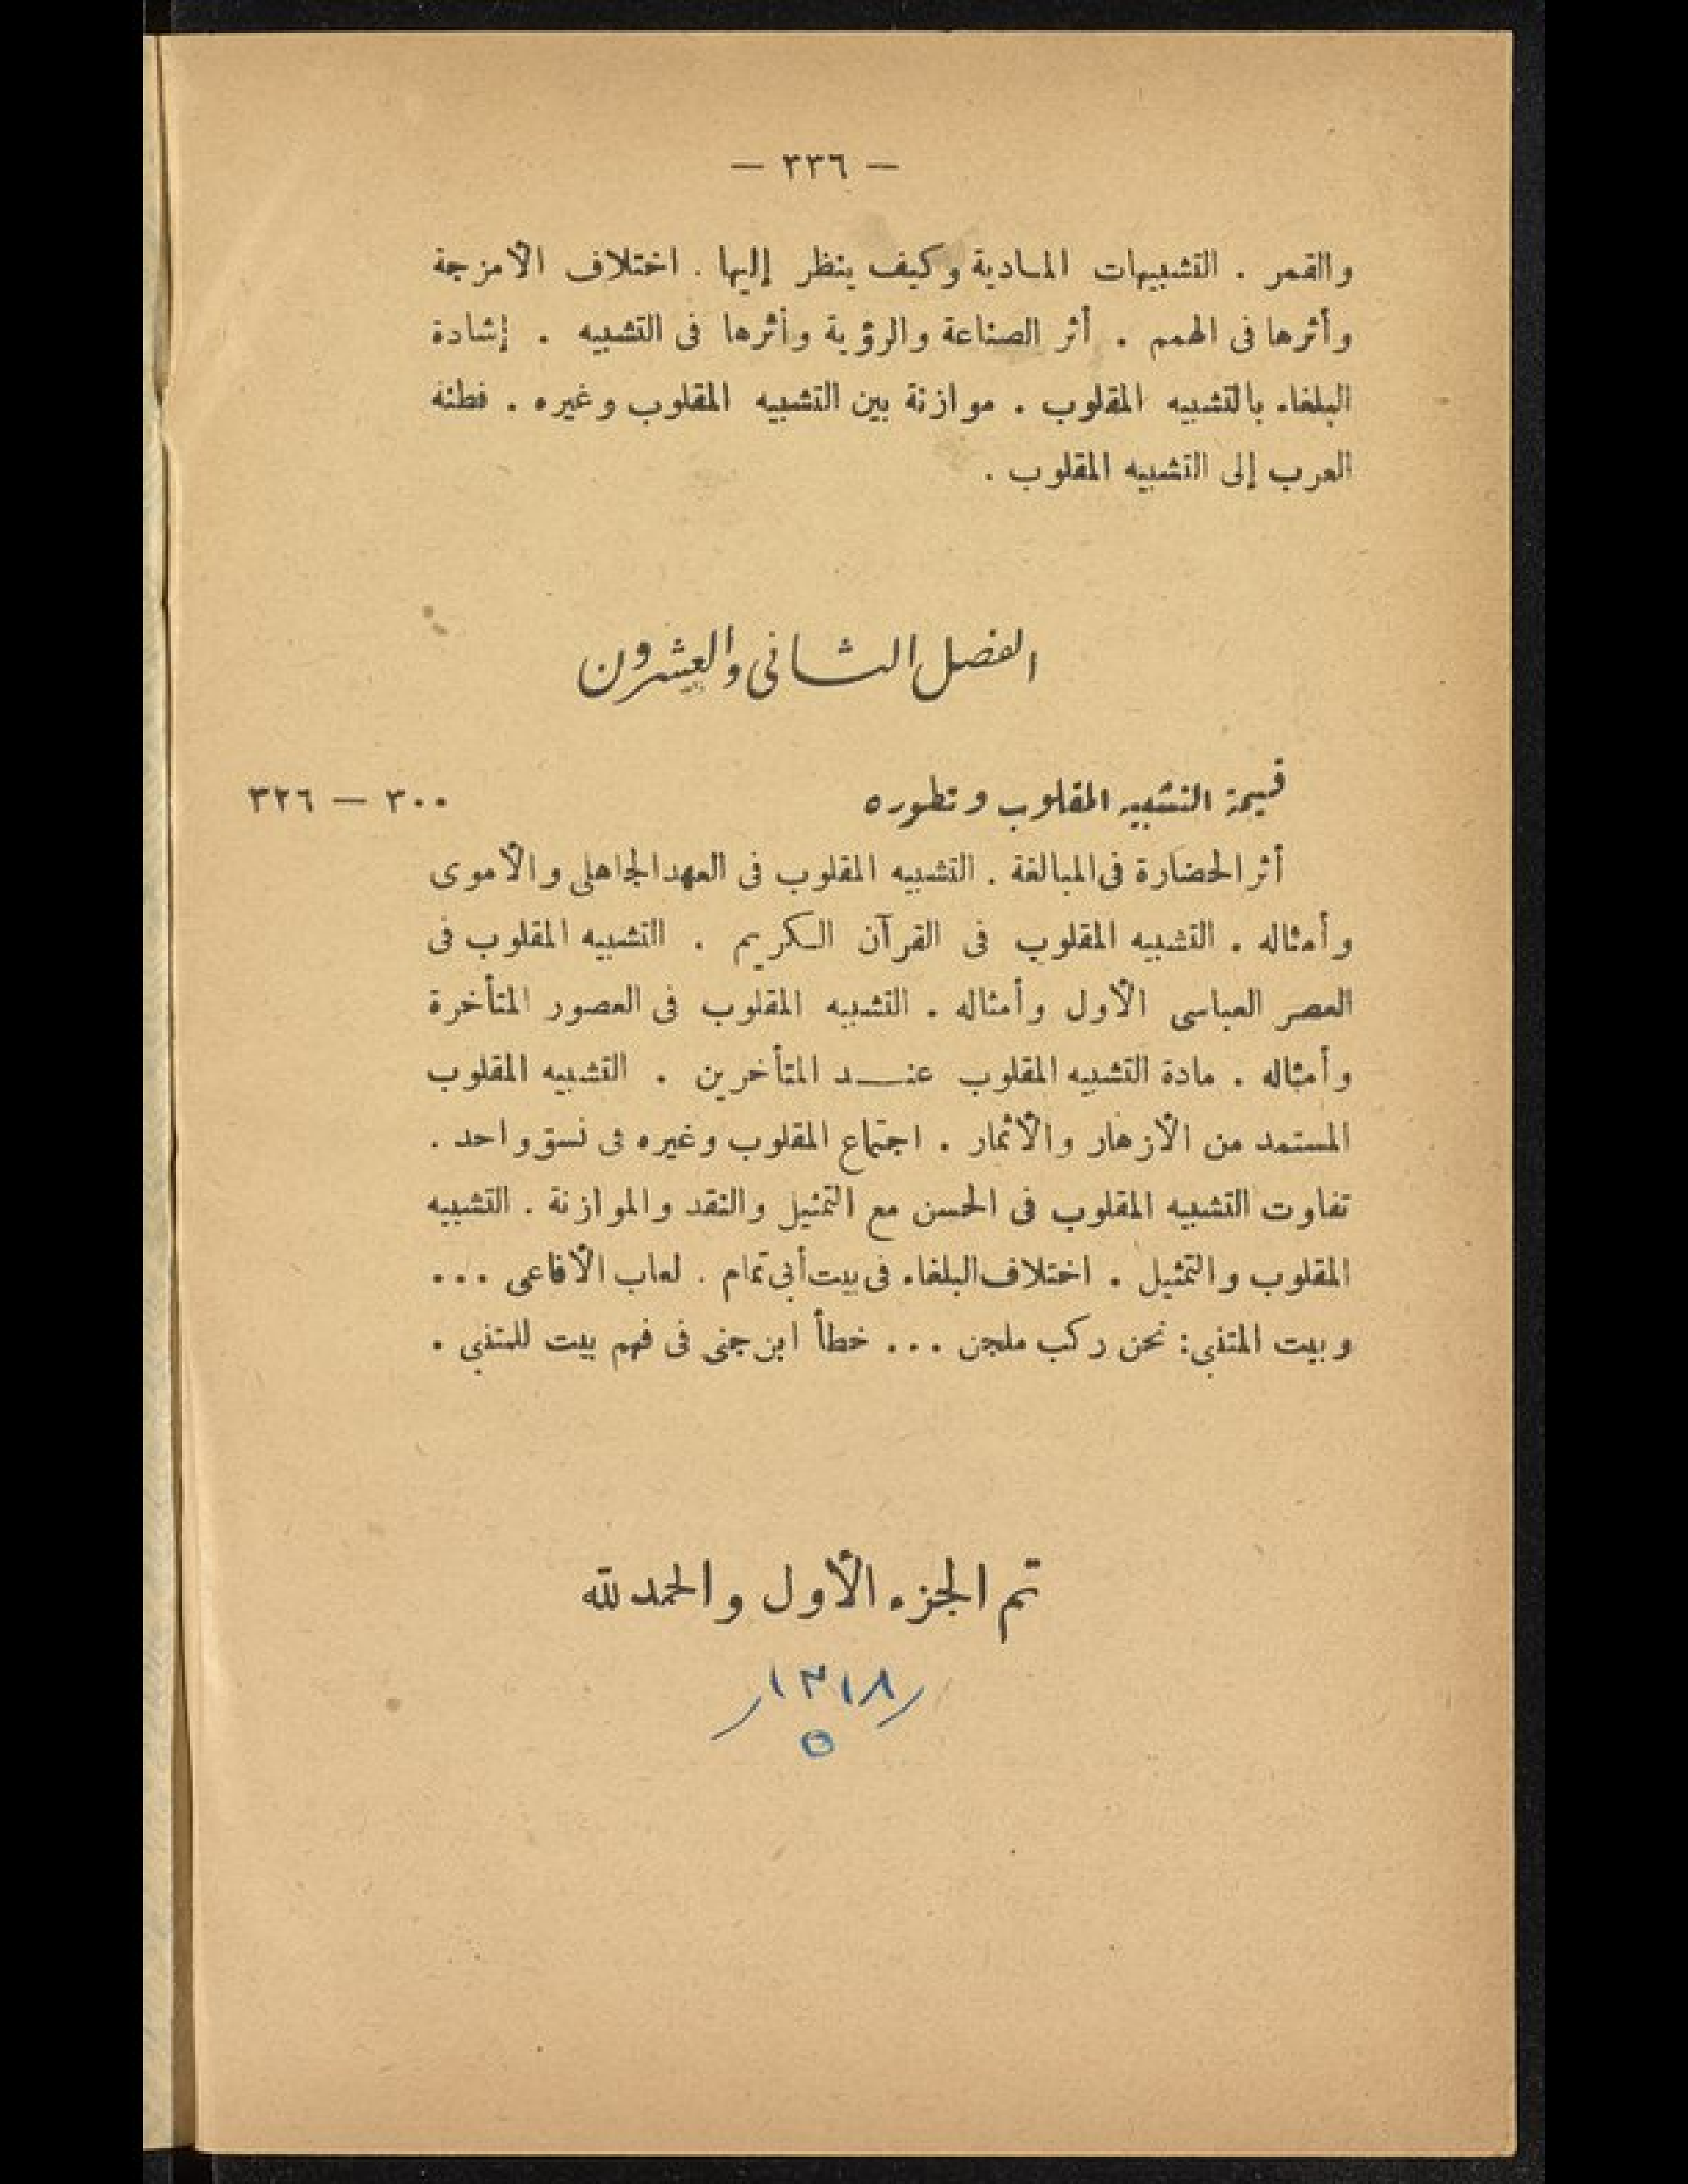 — ٣٣٦ —
والقمر . التشبيهات المادية وكيف ينظر إليها . اختلاف الأمزجة
وأثرها فى الهمم . أثر الصناعة والرؤية وأثرها فى التشبيه . إشادة
البلغاء بالتشبيه المقلوب . موازنة بين التشبيه المقلوب وغيره . فطنة
العرب إلى التشبيه المقلوب .
الفصل الثانى والعشرون
قيمة التشبيه المقلوب وتطوره ٣٠٠ — ٣٢٦
أثر الحضارة فى المبالغة . التشبيه المقلوب فى العهد الجاهلى والأموى
وأمثاله . التشبيه المقلوب فى القرآن الكريم . التشبيه المقلوب فى
العصر العباسى الأول وأمثاله . التشبيه المقلوب فى العصور المتأخرة
وأمثاله . مادة التشبيه المقلوب عند المتأخرين . التشبيه المقلوب
المستمد من الأزهار والأثمار . اجتماع المقلوب وغيره فى نسق واحد .
تفاوت التشبيه المقلوب فى الحسن مع التمثيل والنقد والموازنة . التشبيه
المقلوب والتمثيل . اختلاف البلغاء فى بيت أبى تمام . لعاب الأفاعى ...
وبيت المتنبى: نحن ركب ملجن ... خطأ ابن جنى فى فهم بيت للمتنبى .
تم الجزء الأول والحمد لله
١٣١٨
٥